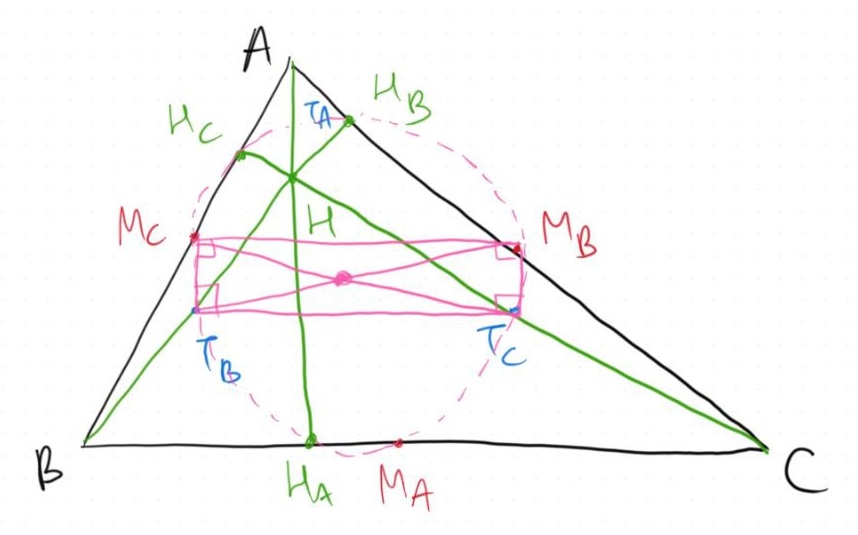 A
H_C
T_A
H_B
M_C
H
M_B
T_B
T_C
B
H_A
M_A
C